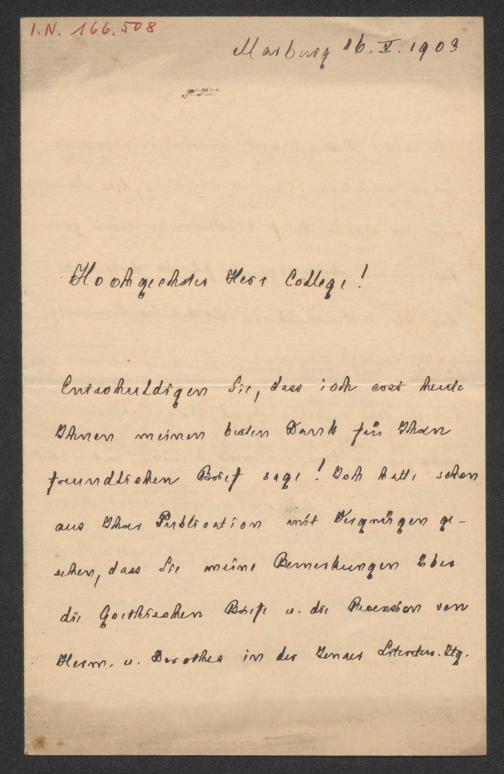 I.N. 166.508
Marburg 16. V. 1903
Hochgeehrter Herr College!
Entschuldigen Sie, dass ich erst heute
Ihnen meinen besten Dank für Ihren
freundlichen Brief sage! Ich hatte schon
aus Ihrer Publication mit Vergnügen ge-
sehen, dass Sie meine Bemerkungen über
die Goethischen Briefe u. die Recension von
Herm. u. Dorothea in der Jenaer Literatur. Ztg.